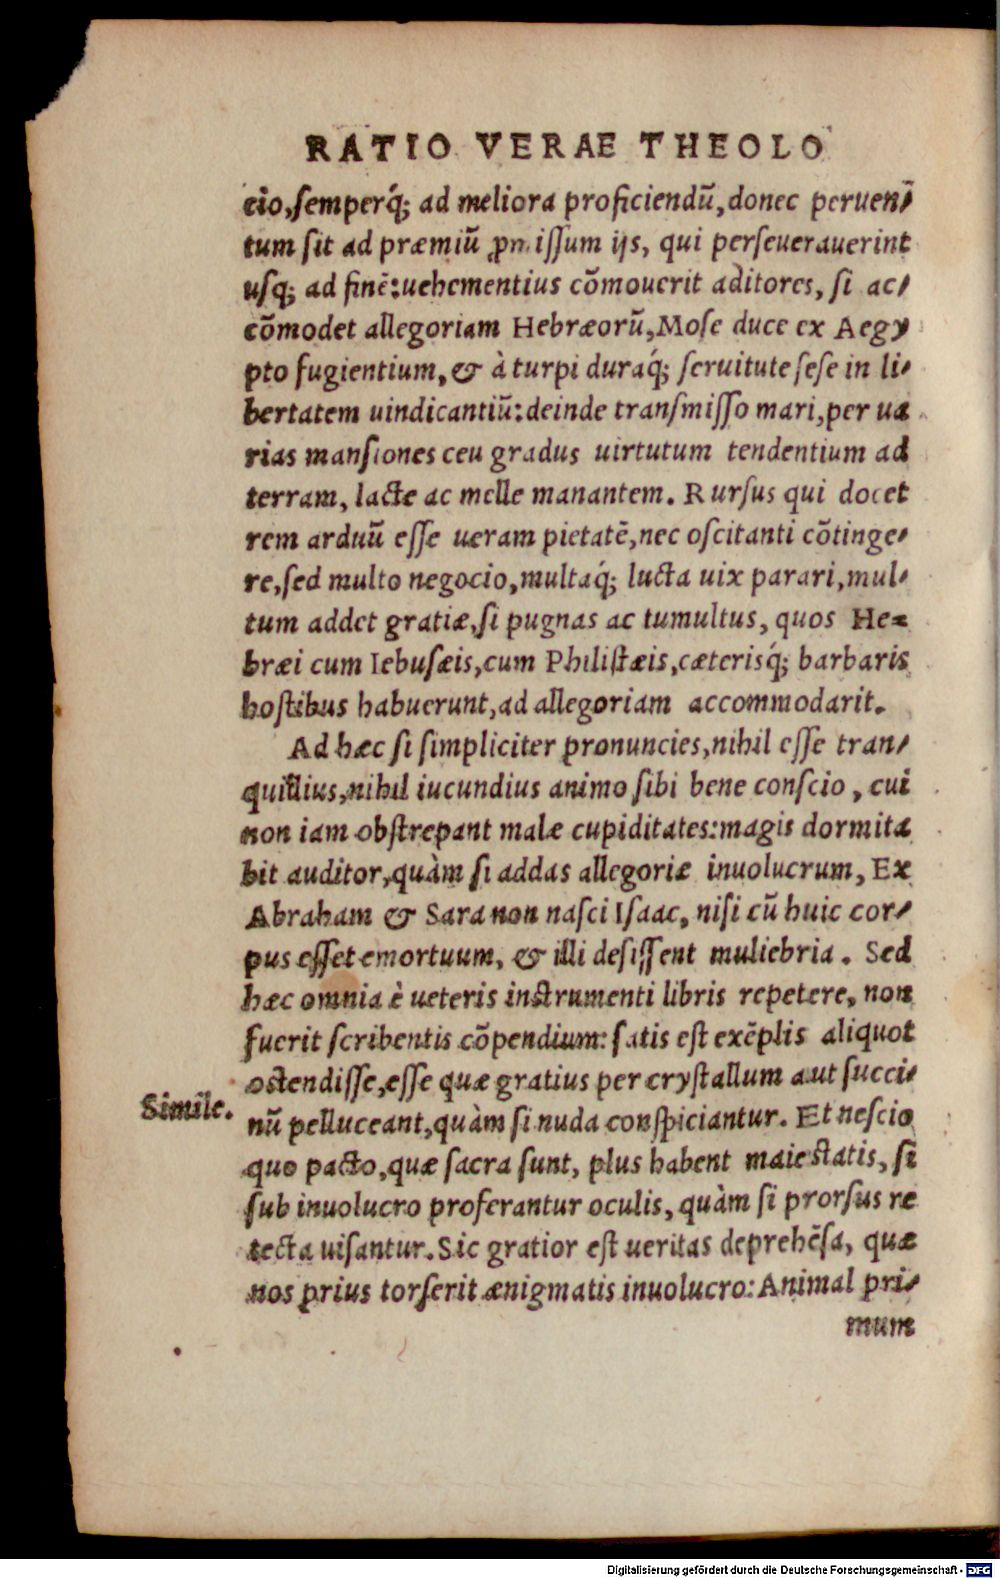 RATIO VERAE THEOLO
cio, semperq́; ad meliora proficiendū, donec peruen/
tum sit ad præmiū ꝓmissum ijs, qui perseuerauerint
usq; ad finē: uehementius cōmouerit aditores, si ac/
cōmodet allegoriam Hebræorū, Mose duce ex Aegy
pto fugientium, & à turpi duraq́; seruitute sese in li/
bertatem uindicantiū: deinde transmisso mari, per ua
rias mansiones ceu gradus uirtutum tendentium ad
terram, lacte ac melle manantem. Rursus qui docet
rem arduū esse ueram pietatē, nec oscitanti cōtinge/
re, sed multo negocio, multaq́; lucta uix parari, mul/
tum addet gratiæ, si pugnas ac tumultus, quos He=
bræi cum Iebusæis, cum Philistæis, cæterisq́; barbaris
hostibus habuerunt, ad allegoriam accommodarit.
Ad hæc si simpliciter pronuncies, nihil esse tran/
quillius, nihil iucundius animo sibi bene conscio, cui
non iam obstrepant malæ cupiditates: magis dormita
bit auditor, quàm si addas allegoriæ inuolucrum, Ex
Abraham & Sara non nasci Isaac, nisi cū huic cor/
pus esset emortuum, & illi desissent muliebria. Sed
hæc omnia è ueteris instrumenti libris repetere, non
fuerit scribentis cōpendium: satis est exēplis aliquot
ostendisse, esse quæ gratius per crystallum aut succi/
Simile.
nū pelluceant, quàm si nuda conspiciantur. Et nescio
quo pacto, quæ sacra sunt, plus habent maiestatis, si
sub inuolucro proferantur oculis, quàm si prorsus re
tecta uisantur. Sic gratior est ueritas deprehēsa, quæ
nos prius torserit ænigmatis inuolucro: Animal pri/
mum
Digitalisierung gefördert durch die Deutsche Forschungsgemeinschaft - DFG